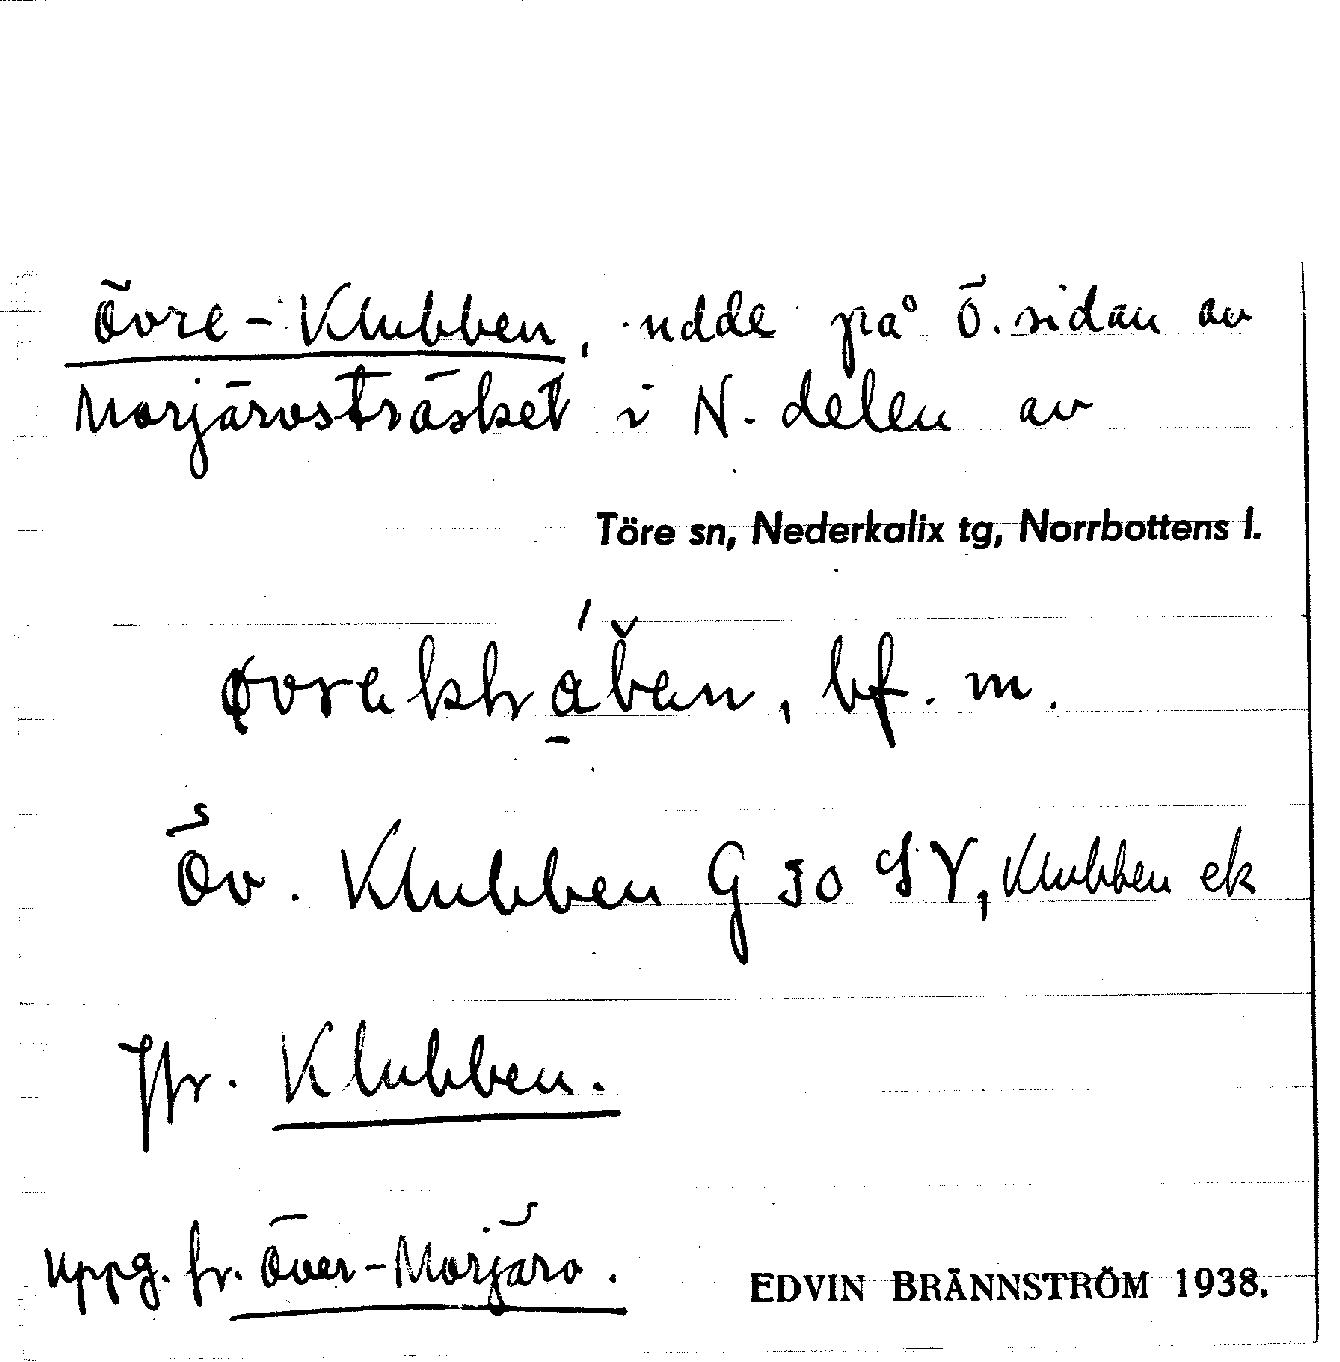 Övre-Klubben, udde på Ö. sidan av
Morjärvsträsket i N. delen av
Töre sn, Nederkalix tg, Norrbottens l.
bf. m.
Öv. Klubben G 30 SV, Klubben ek
Jfr. Klubben.
uppg. fr. Över-Morjärv.
EDVIN BRÄNNSTRÖM 1938.